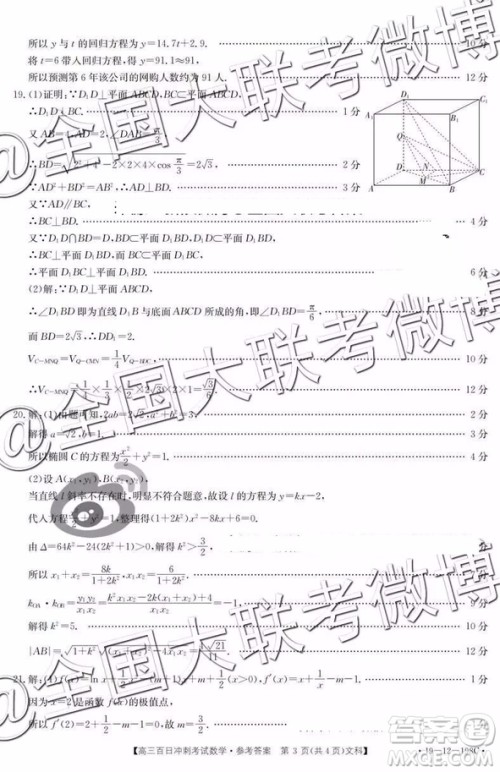 所以 y 与 t 的回归方程为 y=14.7t+2.9. 10分
将 t=6 带人回归方程,得 y=91.1≈91.
所以预测第 6 年该公司的网购人数约为 91 人. 12分
19.(1)证明:∵D₁D⊥平面 ABCD,BC⊂平面 ABCD,
∴D₁D⊥BC. 1分
又 AB=4,AD=2,∠DAB=π/3
∴BD=√(2²+4²-2×2×4×cos π/3)=2√3, 2分
∵AD²+BD²=AB²,∴AD⊥BD. 3分
又∵AD∥BC,
∴BC⊥BD. 4分
又∵D₁D∩BD=D,BD⊂平面 D₁BD,D₁D⊂平面 D₁BD,
∴BC⊥平面 D₁BD,而 BC⊂平面 D₁BC,
∴平面 D₁BC⊥平面 D₁BD. 6分
(2)解:∵D₁D⊥平面 ABCD,
∴∠D₁BD 即为直线 D₁B 与底面 ABCD 所成的角,即∠D₁BD=π/6, 8分
而 BD=2√3,∴DD₁=2.
V_{C-MNQ}=V_{Q-CMN}=1/4 V_{Q-BDC}, 10分
∴V_{C-MNQ}=1/4×1/3×1/2×2√3×2×1=√3/6. 12分
20.解:(1)由题可知,2ab=2√2,a²+b²=3, 2分
解得 a=√2,b=1. 3分
所以椭圆 C 的方程为 x²/2+y²=1. 4分
(2)设 A(x₁,y₁),B(x₂,y₂),
当直线 l 斜率不存在时,明显不符合题意,故设 l 的方程为 y=kx-2,
代人方程 x²/2+y²=1,整理得(1+2k²)x²-8kx+6=0.
由 Δ=64k²-24(2k²+1)>0,解得 k²>3/2, 6分
所以 x₁+x₂=8k/(1+2k²),x₁x₂=6/(1+2k²). 7分
k_{OA}·k_{OB}=y₁y₂/x₁x₂=(k²x₁x₂-2k(x₁+x₂)+4)/x₁x₂ 9分
解得 k²=5. 10分
|AB|=√(1+k²)√((x₁+x₂)²-4x₁x₂)=4√21/11. 12分
1分
4分
高三百日冲刺考试数学·参考答案 第 3 页(共 4 页)文科】
·19-12-198C·
@全国大联考微博
@全国大联考微博
@全国大联考微博